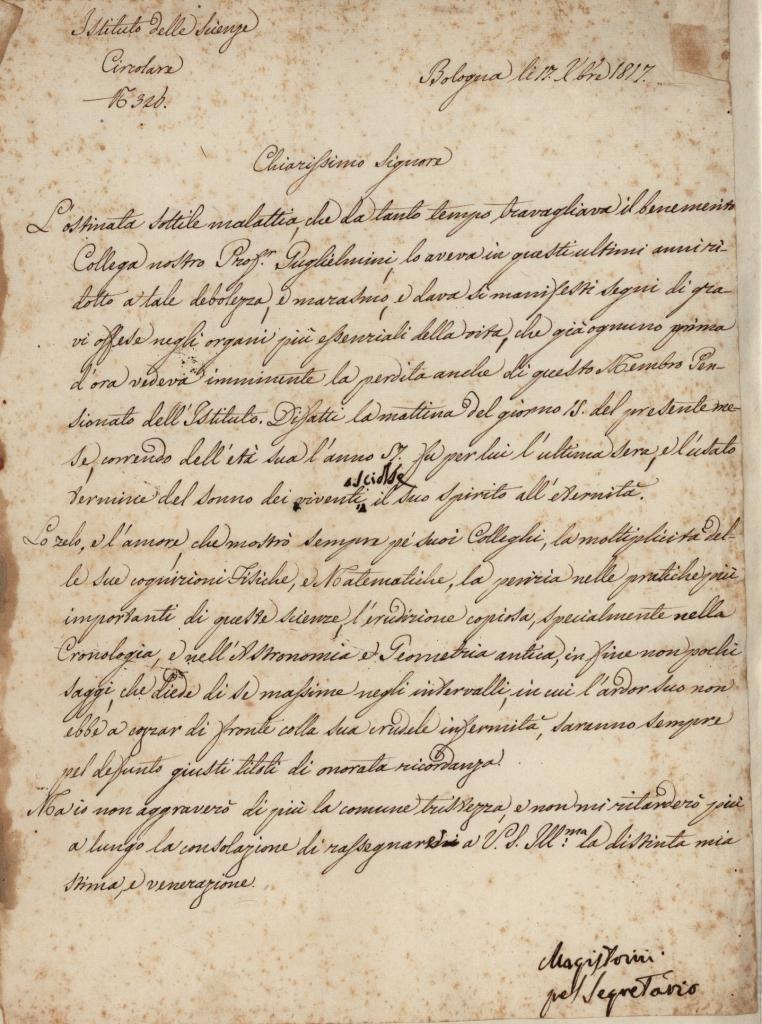 Istituto delle Scienze
Circolare
N. 326.
Bologna li 17. Xbre 1817.
Chiarissimo Signore
L'ostinata sottile malattia, che da tanto tempo travagliava il benemerito
Collega nostro Profr. Guglielmini, lo aveva in questi ultimi anni ri-
dotto a tale debolezza, e marasmo, e dava sì manifesti segni di gra-
vi offese negli organi più essenziali della vita, che già ognuno prima
d'ora vedeva imminente la perdita anche di questo Membro Pen-
sionato dell'Istituto. Difatti la mattina del giorno 15. del presente me-
se, correndo dell'età sua l'anno 57. fu per lui l'ultima sera, e l'usato
sciolse
termine del sonno dei viventi, il suo spirito all'eternità.
Lo zelo, e l'amore, che mostrò sempre pe' suoi Colleghi, la moltiplicità del-
le sue cognizioni Fisiche, e Matematiche, la perizia nelle pratiche più
importanti di queste scienze, l'erudizione copiosa, specialmente nella
Cronologia, e nell'Astronomia e Geometria antica, in fine non pochi
saggi, che diede di se massime negli intervalli, in cui l'ardor suo non
ebbe a cozzar di fronte colla sua crudele infermità, saranno sempre
pel defunto giusti titoli di onorata ricordanza.
Ma io non aggraverò di più la comune tristezza, e non mi ritarderò più
a lungo la consolazione di rassegnare a V. S. Ill.ma la distinta mia
stima, e venerazione.
Magistrini
pel Segretario